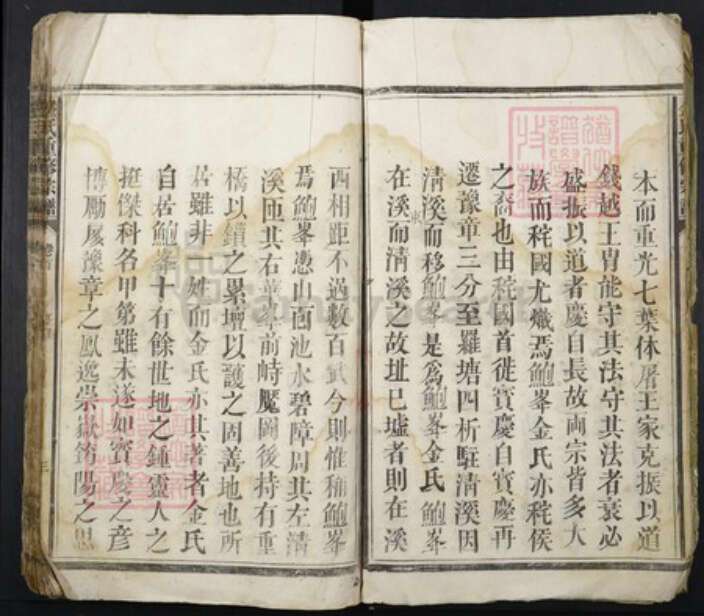 本而重光七葉休屠王家克振以道
錢越王胄能守其法守其法者衰必
盛振以道者慶自長故兩宗皆多大
族而秺國尤熾焉鮑峯金氏亦秺侯
之裔也由秺國首徙寶慶自寶慶再
遷豫章三分至羅塘四析駐清溪因
清溪而移鮑峯是為鮑峯金氏鮑峯
東
在溪而清溪之故址已墟者則在溪
西相距不過數百武今則惟稱鮑峯
焉鮑峯憑山面池水碧障周其左清
溪匝其右華峯前峙魘圖後持有重
橋以鎖之累壇以護之固善地也所
居雖非一姓而金氏亦其著者金氏
自居鮑峯十有餘世地之鍾靈人之
挺傑科名甲第雖未遂如寶慶之彦
博勵展豫章之鳳逸崇嶽銪陽之思